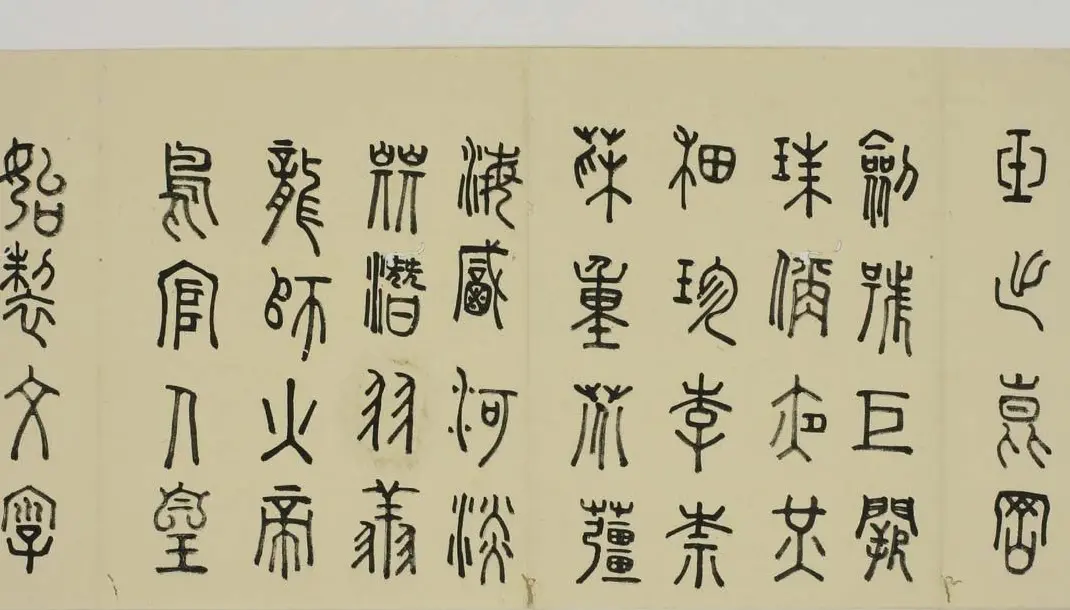 玉出昆岡
劍號巨闕
珠偁夜光
果珍李柰
菜重芥薑
海鹹河淡
鱗潛羽翔
龍師火帝
鳥官人皇
始製文字